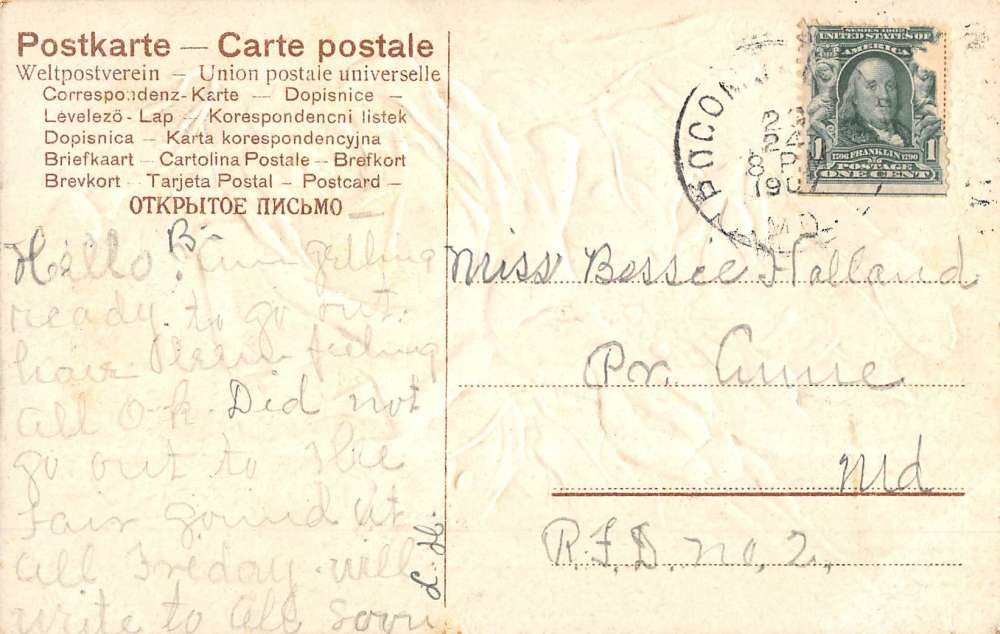 Postkarte — Carte postale
Weltpostverein — Union postale universelle
Correspondenz-Karte — Dopisnice —
Levelező-Lap — Korespondencni listek
Dopisnica — Karta korespondencyjna
Briefkaart — Cartolina Postale — Brefkort
Brevkort — Tarjeta Postal — Postcard —
ОТКРЫТОЕ ПИСЬМО
Hello B. am getting
ready to go out.
have been
all O.k. Did not
go out to the
Fair ground at
all Freday. will
write to all soon
L. H.
SERIES 1902
UNITED STATES OF
AMERICA
1 1706 FRANKLIN 1790 1
POSTAGE
ONE CENT
POCOM
24
8 P
190
MD.
Miss Bessie Holland
Pr. Anne
Md
R.F.D. no, 2,